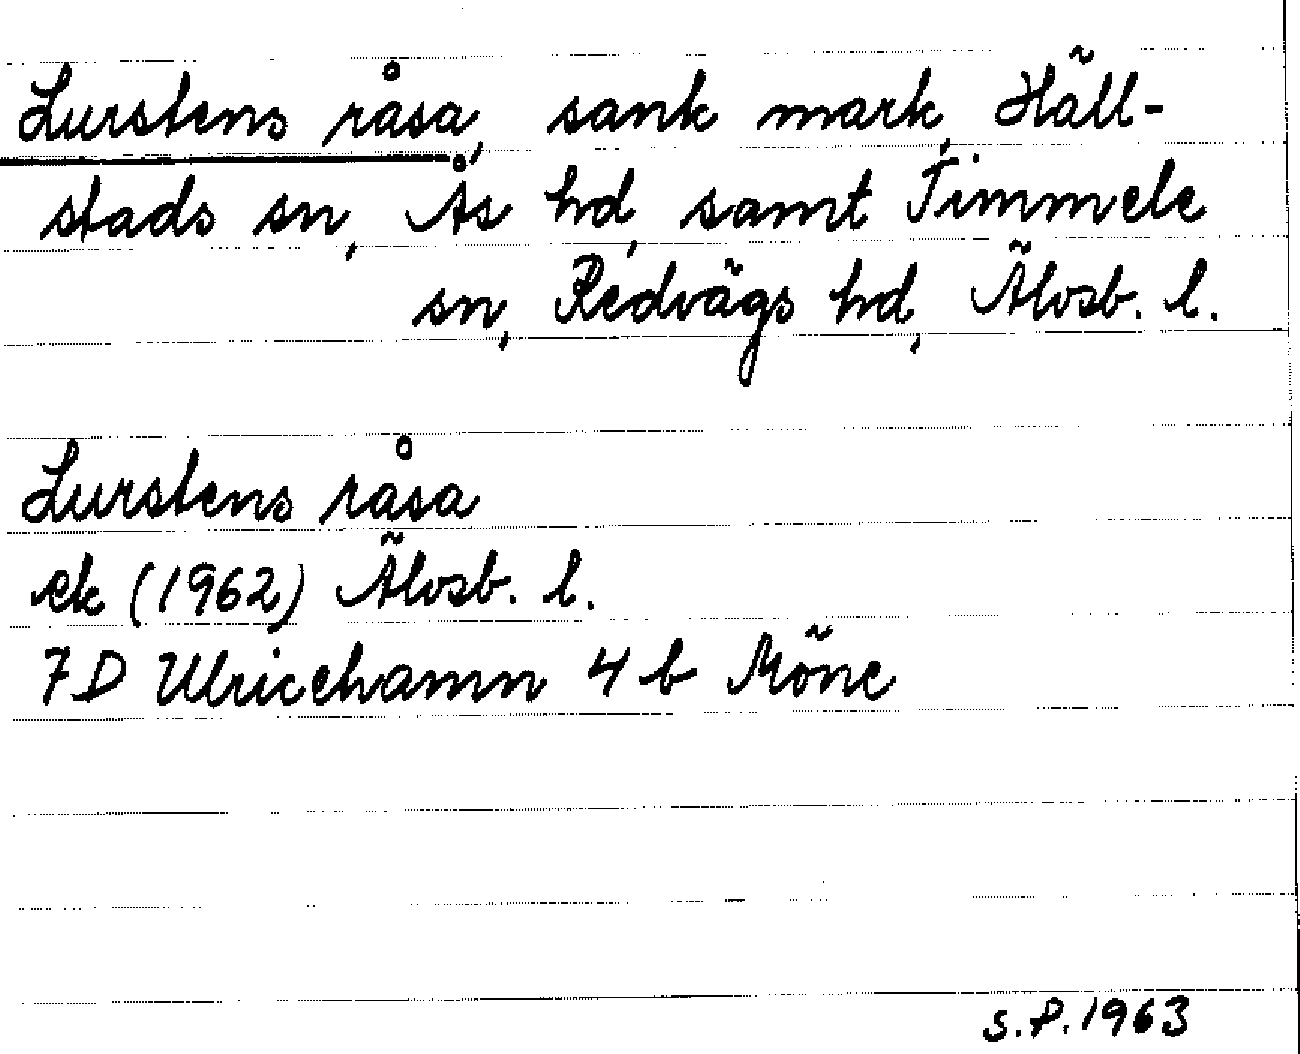 Lurstens råsa, sank mark, Häll-
stads sn, Ås hd, samt Timmele
sn, Redvägs hd, Älvsb. l.
Lurstens råsa
ek (1962) Älvsb. l.
7D Ulricehamn 4 b Möne
S.P. 1963